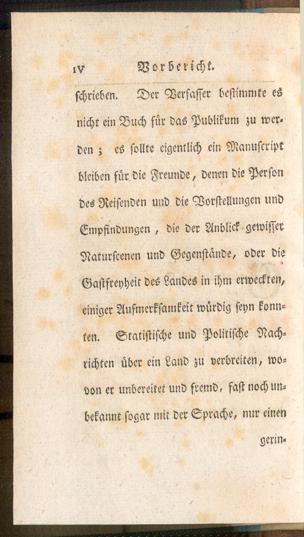 IV Vorbericht.
schrieben. Der Verfasser bestimmte es
nicht ein Buch für das Publikum zu wer-
den; es sollte eigentlich ein Manuscript
bleiben für die Freunde, denen die Person
des Reisenden und die Vorstellungen und
Empfindungen, die der Anblick gewisser
Naturscenen und Gegenstände, oder die
Gastfreyheit des Landes in ihm erweckten,
einiger Aufmerksamkeit würdig seyn konn-
ten. Statistische und Politische Nach-
richten über ein Land zu verbreiten, wo-
von er unbereitet und fremd, fast noch un-
bekannt sogar mit der Sprache, nur einen
gerin-